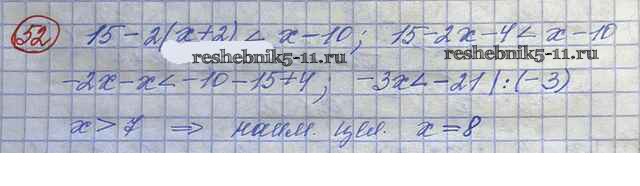 52 15-2(x+2)<x-10; 15-2x-4<x-10
reshebnik5-11.ru reshebnik5-11.ru
-2x-x<-10-15+4, -3x<-21 |:(-3)
x>7 ⇒ наим. цел. x=8